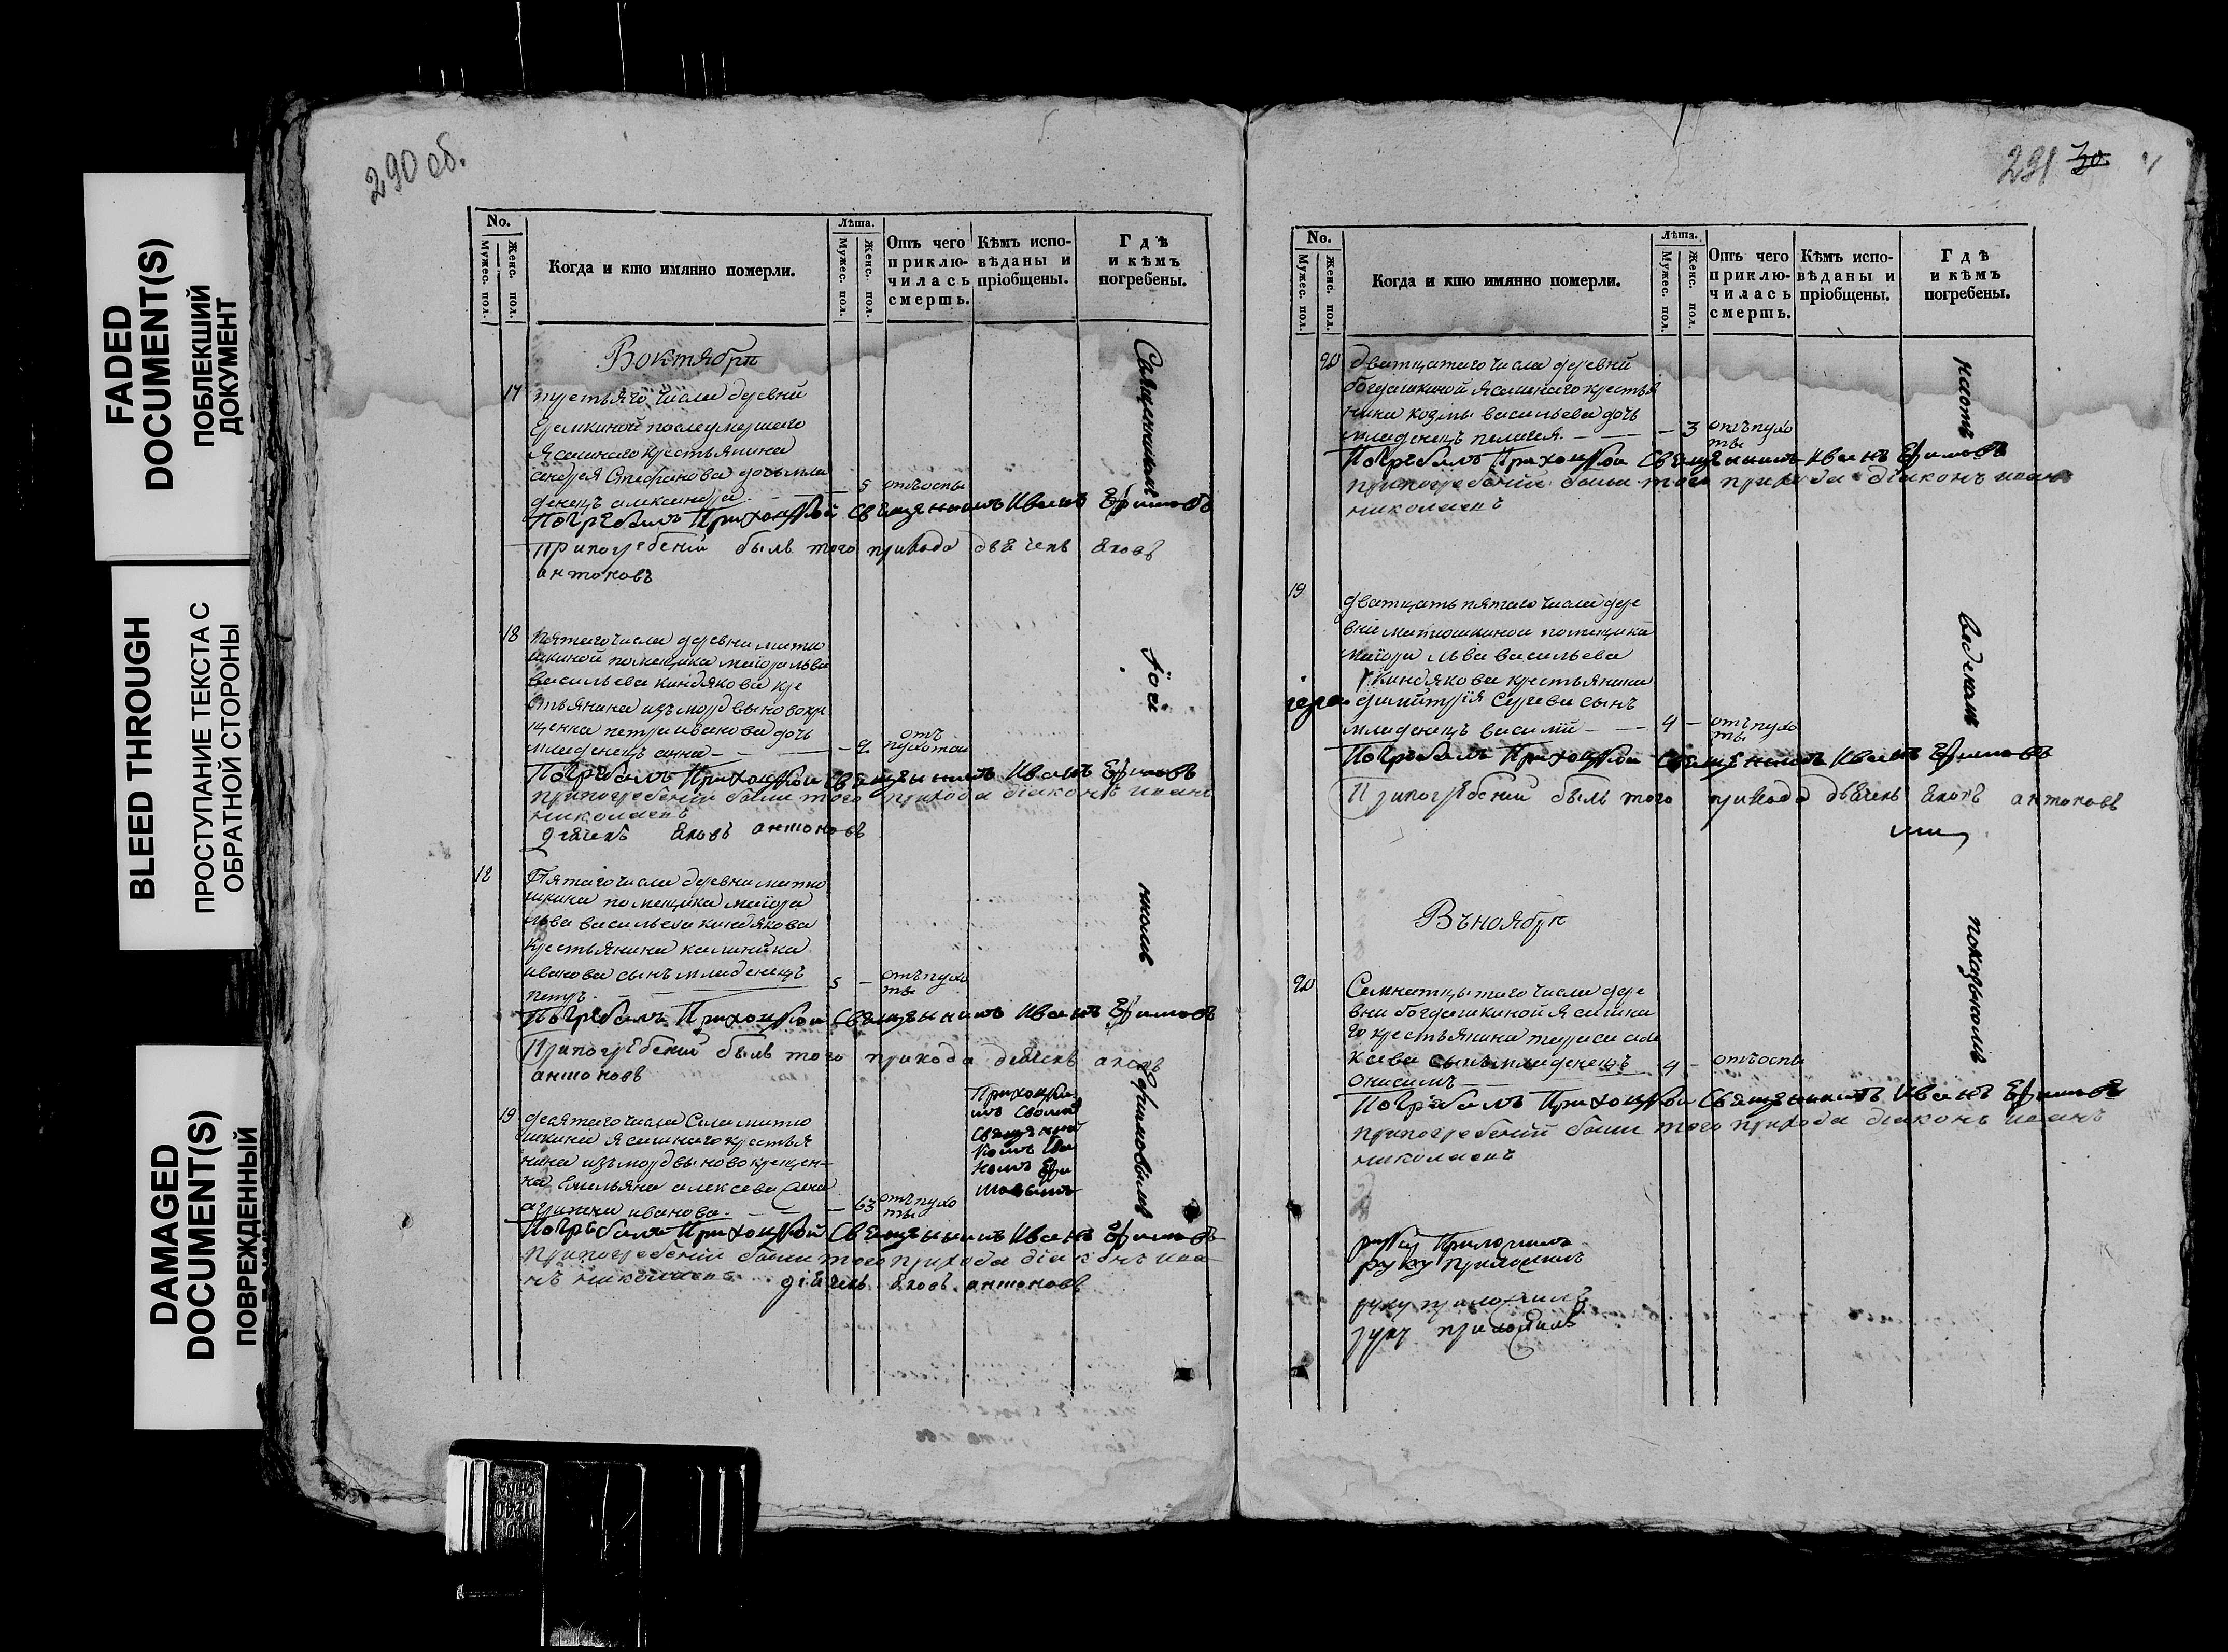 FADED
DOCUMENT(S)
ПОБЛЕКШИЙ
ДОКУМЕНТ
BLEED THROUGH
ПРОСТУПАНИЕ ТЕКСТА С
ОБРАТНОЙ СТОРОНЫ
DAMAGED
DOCUMENT(S)
ПОВРЕЖДЕННЫЙ
290 об.
No.
Мужес. пол.
Женс. пол.
Когда и кто имянно померли.
Лѣта.
Мужес. пол.
Женс. пол.
Отъ чего
приклю-
чилась
смерть.
Кѣмъ испо-
вѣданы и
пріобщены.
Гдѣ
и кѣмъ
погребены.
Воктября
17 третьяго числа деревни
Еремкиной послеумершего
Ясашнаго крестьянина
андрея Стефанова дочь мла
денец александра. 5 отъоспы
Погребалъ Приходской Священникъ Иванъ Ефимовъ
Припогребении былъ того прихода дьячекъ Яковъ
антоновъ
18 пятаго числа деревни матю
шкиной помещика маиора льва
васильева киндякова кре
стьянина измордвы новокре
щенна петра иванова дочь
младенецъ анна 2 отъ
пухоты
Погребалъ Приходской Священникъ Иванъ Ефимовъ
припогребении были того прихода діаконъ иванъ
николаевъ
дьячекъ Яковъ антоновъ
18 Пятаго числа деревни матю
шкина помещика маиора
льва васильева киндякова
крестьянина калиника
иванова сынъ младенецъ
петръ. 5 - отъпухо
ты
Погребалъ Приходской Священникъ Иванъ Ефимовъ
Припогребении былъ того прихода дьячекъ яковъ
антоновъ
19 десятаго числа Села матю
шкина ясашнаго крестья
нина измордвы новокрещен-
на Емельяна алексева жена
иванова. 63 отъпухо
ты
Приходски
мъ своимъ
священни
комъ Ива
номъ Ефи
мовымъ
Погребалъ Приходской Священникъ Иванъ Ефимовъ
Припогребении были того прихода діаконъ ива
нъ николаевъ дьячекъ Яковъ антоновъ
Священникомъ
Ефимовымъ
291 30.
No.
Мужес. пол.
Женс. пол.
Когда и кто имянно померли.
Лѣта.
Мужес. пол.
Женс. пол.
Отъ чего
приклю-
чилась
смерть.
Кѣмъ испо-
вѣданы и
пріобщены.
Гдѣ
и кѣмъ
погребены.
20 дватцатаго числа деревни
богдашкиной ясашнаго крестья
нина козмы васильева дочь
младенецъ пелагея. - 3 отъпухо
ты
Погребалъ Приходской Священникъ Иванъ Ефимовъ
припогребении были того прихода діаконъ иванъ
николаевъ
19 дватцать пятаго числа дере
вни матюшкиной помещика
маиора льва васильева
Киндякова крестьянина
димитрія Сергева сынъ
младенецъ василій 4 - отъпухо
ты
Погребалъ Приходской Священникъ Иванъ Ефимовъ
Припогребении былъ того прихода дьячекъ Яковъ антоновъ
Въноября
20 Семнатцатаго числа дере
вни богдашкиной ясашна
го крестьянина тараса
сынъ младенецъ 4 - отъоспы
онисимъ
Погребалъ Приходской Священникъ Иванъ Ефимовъ
припогребении были того прихода діаконъ иванъ
николаевъ
руку Приложилъ
руку приложилъ
руку приложилъ
руку приложилъ